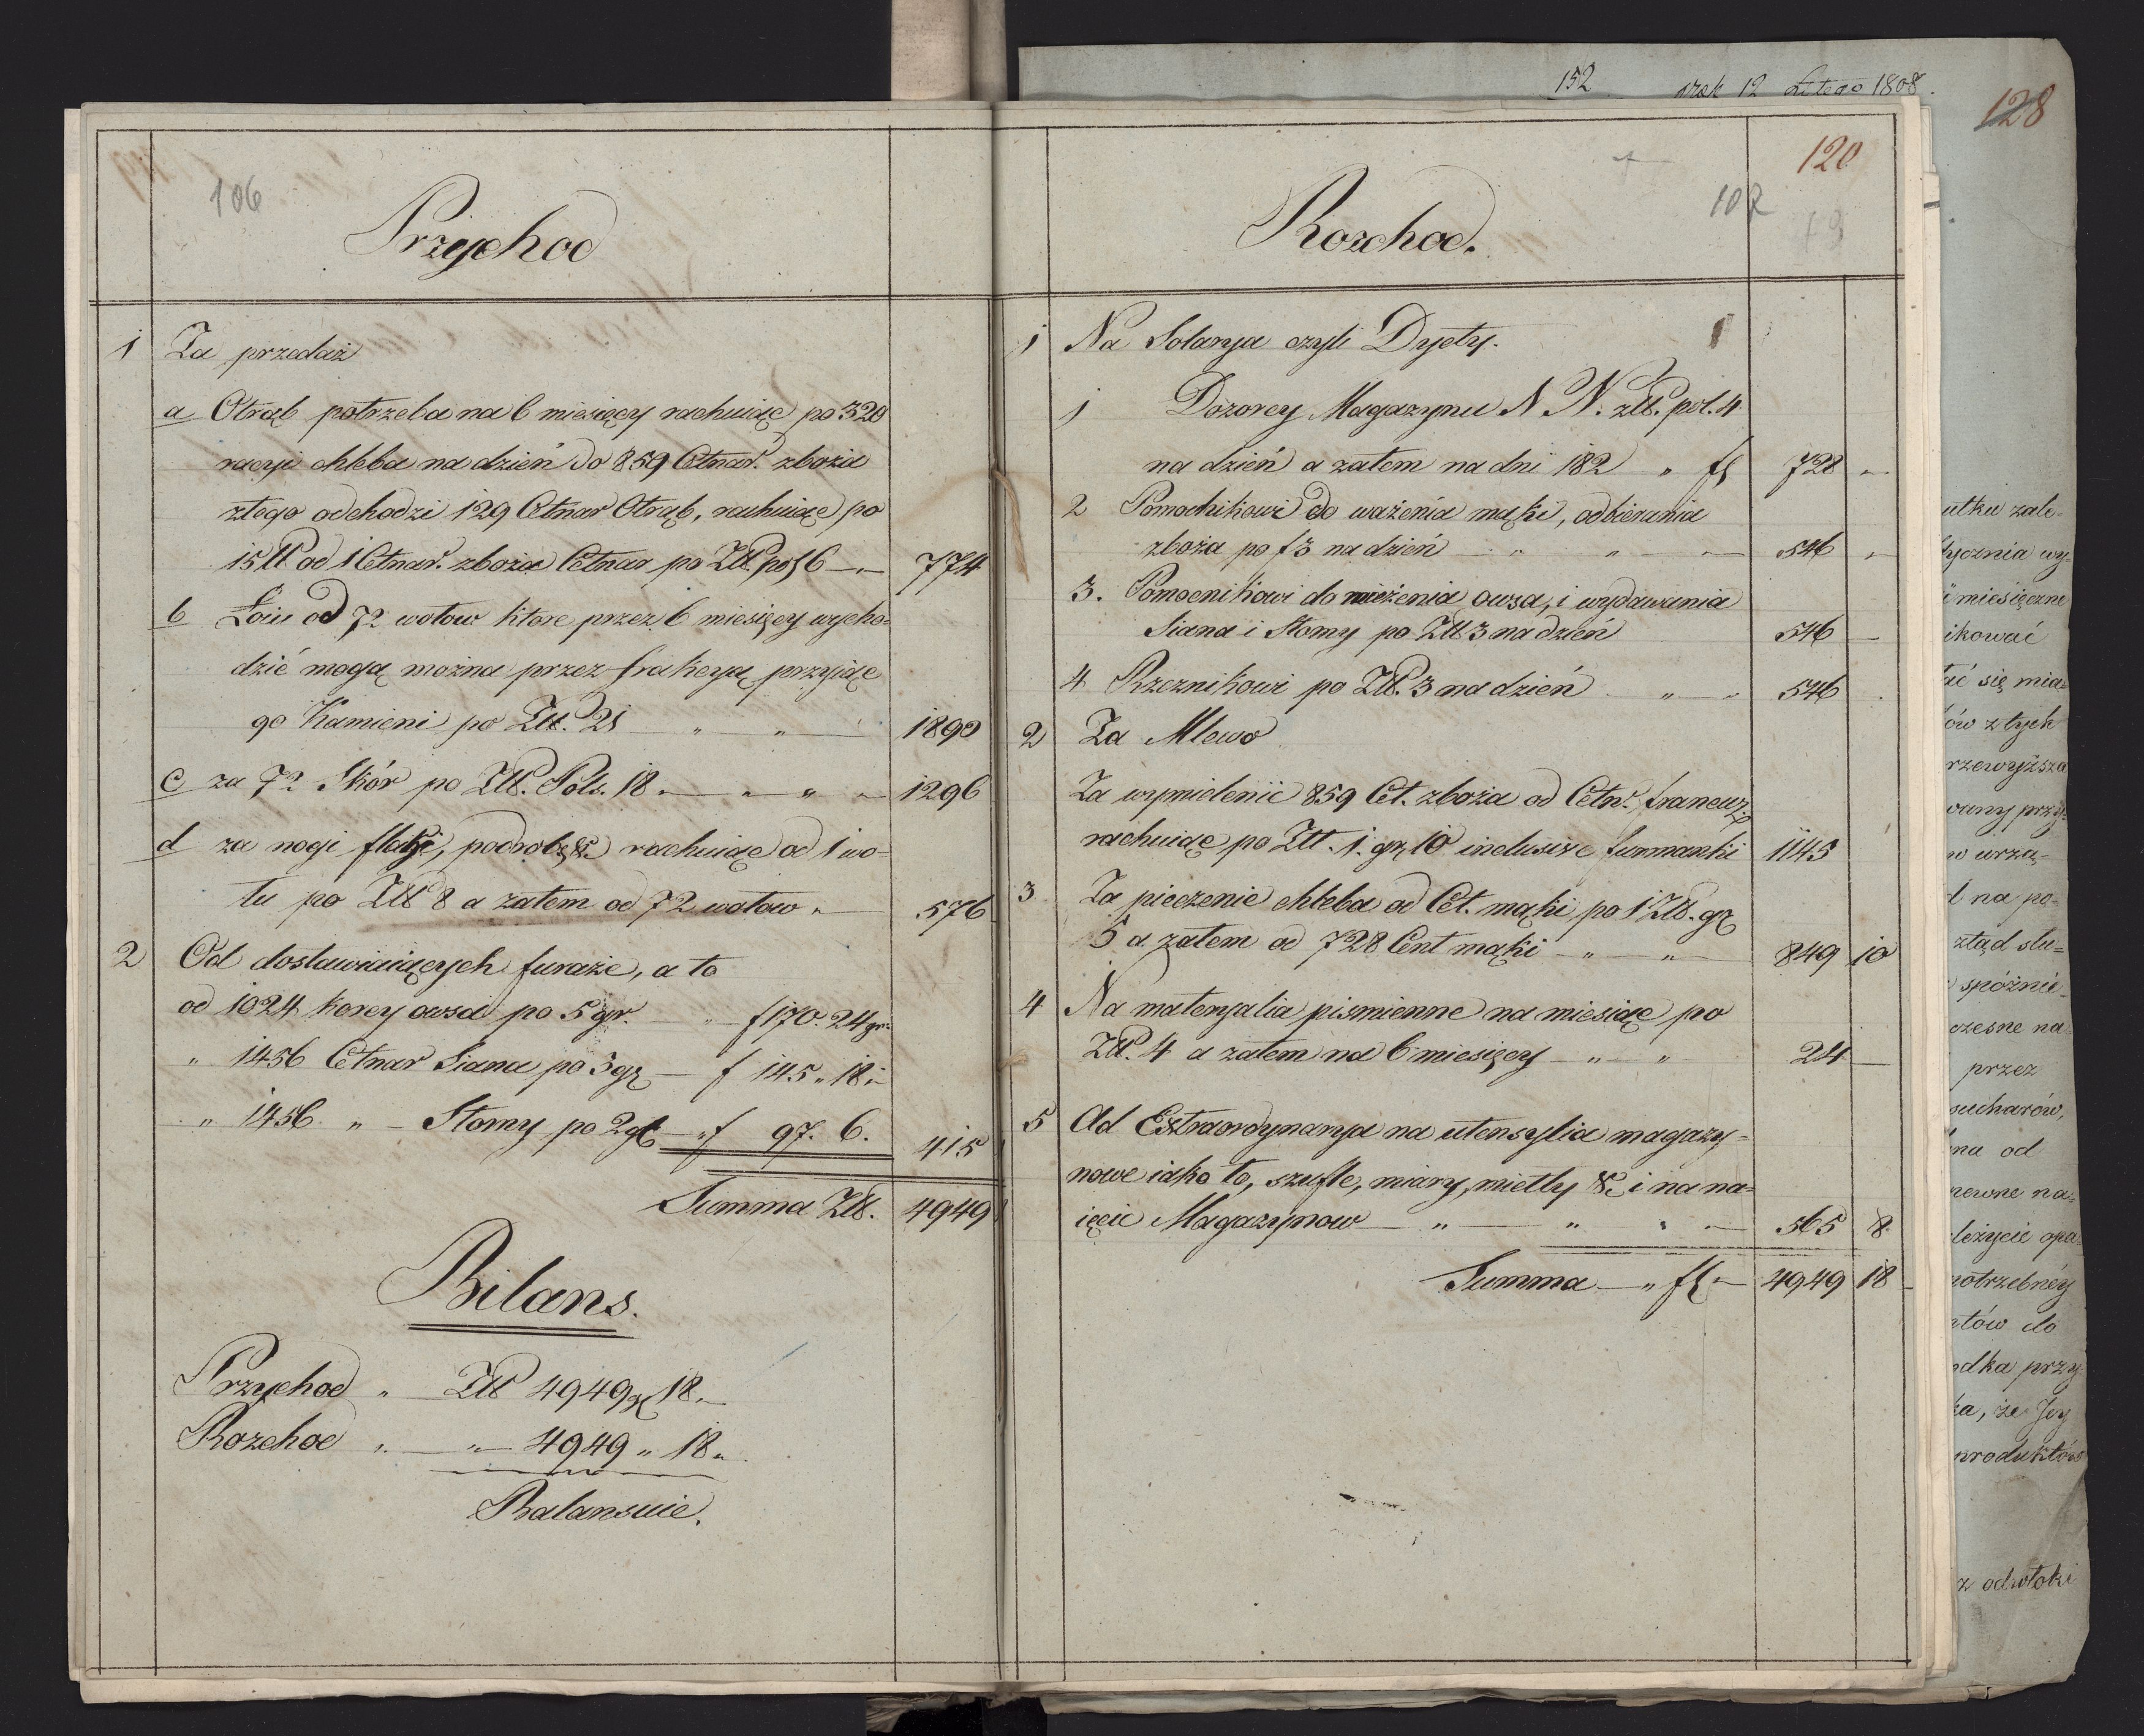 106
Przychod
1 Za przedaż
a Otrąb potrzeba na 6 miesięcy rachuiąc po 320
racyi chleba na dzień do 859 Cetnar. zboża
ztego odchodzi 129 Cetnar Otrąb, rachuiąc po
15 ℔ od 1 Cetnar. zboża Cetnar po Zł℔ pol 6 — „ — 774
b Łoiu od 72 wołow ktore przez 6 miesięcy wycho=
dzić mogą można przez frakcyą przyiąc
90 Kamieni po Zł. 21 „ „ 1890
c za 72 Skór po Zł. Pols. 18 „ — „ „ 1296
d za nogi flaki, podrob &. rachuiąc od 1 wo=
łu po Zł 8 a zatem od 72 wołow „ — 576
2 Od dostawiaiących furaże, a to
od 1024 korcy owsa po 5 gr. — „ — f 170. 24 gr.
„ 1456 Cetnar Siana po 3 gr — f 145 „ 18 „
„ 1456 „ — Słomy po 2 gr — „ f 97. 6. 415
Summa Zł. 4949
Bilans.
Przychod „ Zł 4949 gr 18 „
Rozchod „ — „ — 4949 „ 18 „
Balansuie.
152 12 Lutego 1808.
128
120
102
19
Rozchod.
1 Na Solarya czyli Dyety.
1 Dozorcy Magazynu N N. zł. pol. 4
na dzień a zatem na dni 182 „ fl 728 „
2 Pomocnikowi do ważenia mąki, odbierania
zboża po f 3 na dzień — „ „ — 546 „
3. Pomocnikowi do mierzenia owsa, i wydawania
Siana i Słomy po Zł 3 na dzień 546 —
4 Rzeznikowi po Zł. 3 na dzień „ — „ 546
2 Za Mlewo
Za wymielenie 859 Cet. zboża od Cetn. francuz
rachuiąc po Zł. 1. gr 10 inclusive furmanki 1145
3 Za pieczenie chleba od Cet. mąki po 1 Zł. gr
5 a zatem od 728 Cent mąki — „ — „ 849 10
4 Na materyalia pismienne na miesiąc po
Zł. 4 a zatem na 6 miesięcy — „ — „ 24 —
5 Ad Extraordynarya na utensylia magazy=
nowe iako to, szufle, miary, mietły &. i na na=
ięcie Magazynow — „ — „ „ — 565 8
Summa — „ fl — 4949 18
utku zale-
tycznia wy-
miesięczne
ikować
ać się mia=
ów z tych
rzewyższa
wany przy-
w urzą-
d na po-
ztąd słu=
spóźnie-
czesne na-
przez
sucharów,
na od
pewne na-
leżycie opa-
potrzebney
tów do
dka przy
ka, że Jey
produktów
z odwłoki